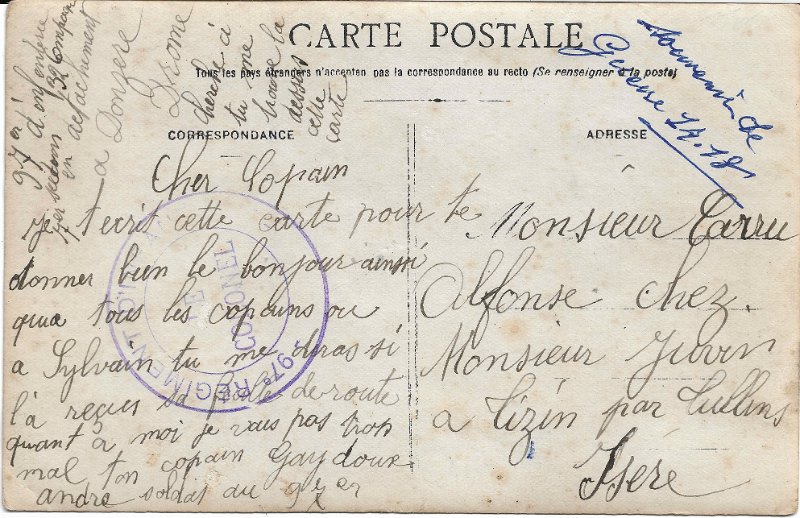 CARTE POSTALE
Tous les pays étrangers n'acceptent pas la correspondance au recto (Se renseigner à la poste)
Souvenir de
Guerre 14.18
CORRESPONDANCE
97er d'infanterie
1er section 32 Compagnie
en detachement
a Donzere
Drome
cherche ci
tu me
trouve la
dessus
cette
carte
Cher Copain
Je t ecrit cette carte pour te
donner bien le bonjour ainsi
qua tous les copains ou
a Sylvain tu me diras si
l'a reçus sa de route
quant à moi je vais pas trop
mal ton copain Gaydoux
andre soldat au 97er
97e REGIMENT D'INFANTERIE
LE COLONEL
ADRESSE
Monsieur Carru
Alfonse chez.
Monsieur Juvin
a Tizin par Tullins
Isère